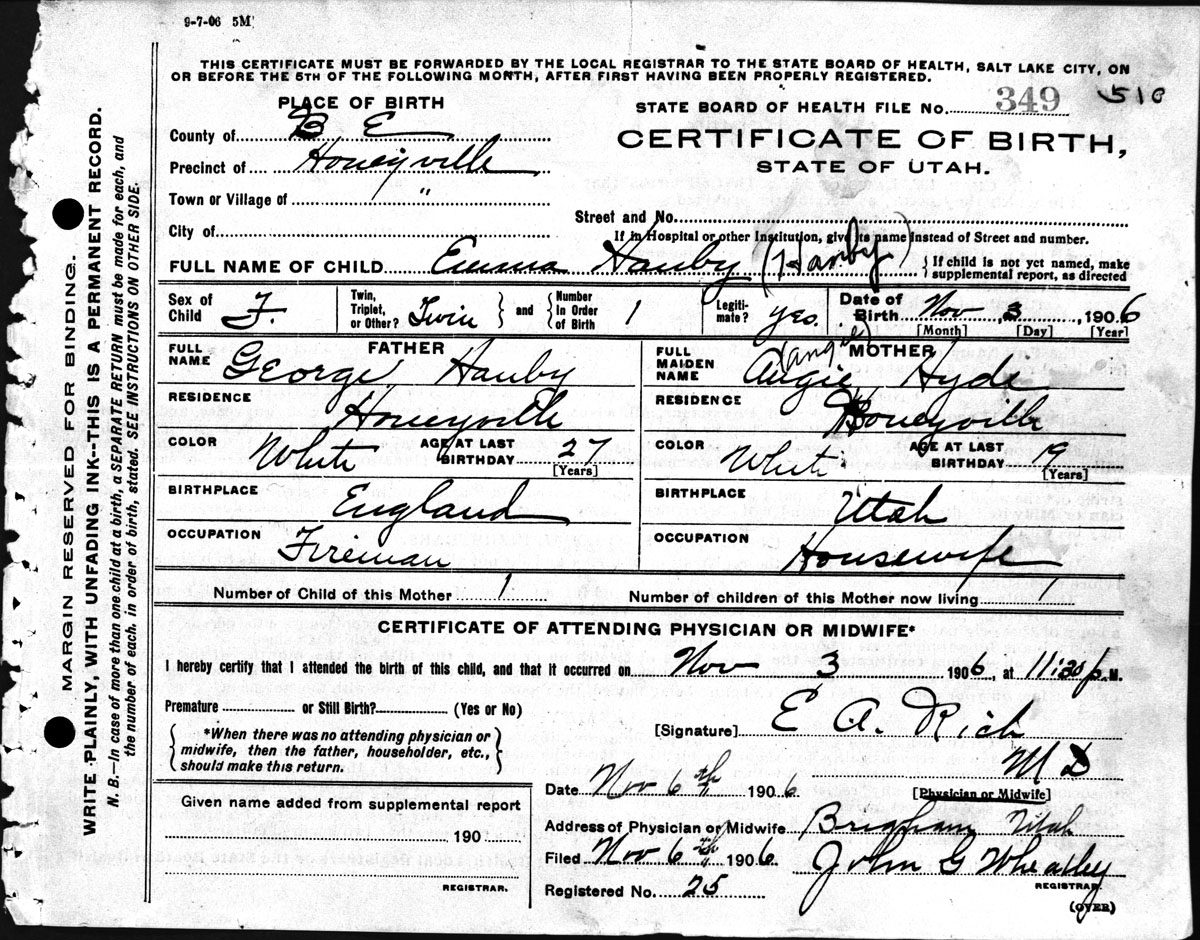 9-7-06 5M
THIS CERTIFICATE MUST BE FORWARDED BY THE LOCAL REGISTRAR TO THE STATE BOARD OF HEALTH, SALT LAKE CITY, ON
OR BEFORE THE 5TH OF THE FOLLOWING MONTH, AFTER FIRST HAVING BEEN PROPERLY REGISTERED.
PLACE OF BIRTH
County of B E
Precinct of Honeyville
Town or Village of "
City of
STATE BOARD OF HEALTH FILE No. 349 510
CERTIFICATE OF BIRTH,
STATE OF UTAH.
Street and No.
If in Hospital or other Institution, give its name instead of Street and number.
FULL NAME OF CHILD Emma Hanby (Hanby) {If child is not yet named, make
supplemental report, as directed
Sex of Child F.
Twin, Triplet, or Other? Twin } and { Number in Order of Birth 1
Legitimate? yes
Date of Birth Nov 3, 1906
[Month] [Day] [Year]
FATHER
FULL NAME George Hanby
RESIDENCE Honeyville
COLOR White AGE AT LAST BIRTHDAY 27
[Years]
BIRTHPLACE England
OCCUPATION Fireman
MOTHER
FULL MAIDEN NAME Angie Hyde
RESIDENCE Honeyville
COLOR White AGE AT LAST BIRTHDAY 19
[Years]
BIRTHPLACE Utah
OCCUPATION Housewife
Number of Child of this Mother 1 Number of children of this Mother now living 1
CERTIFICATE OF ATTENDING PHYSICIAN OR MIDWIFE*
I hereby certify that I attended the birth of this child, and that it occurred on Nov 3 1906, at 11:30 p.M.
Premature or Still Birth? (Yes or No)
{*When there was no attending physician or
midwife, then the father, householder, etc.,
should make this return.}
Given name added from supplemental report
190
REGISTRAR.
[Signature] E A Rich
M D
[Physician or Midwife]
Date Nov 6th 1906
Address of Physician or Midwife Brigham Utah
Filed Nov 6th 1906 John G Wheatley
REGISTRAR.
Registered No. 25
(OVER)
MARGIN RESERVED FOR BINDING.
WRITE PLAINLY, WITH UNFADING INK--THIS IS A PERMANENT RECORD.
N. B.—In case of more than one child at a birth, a SEPARATE RETURN must be made for each, and
the number of each. in order of birth, stated. SEE INSTRUCTIONS ON OTHER SIDE.